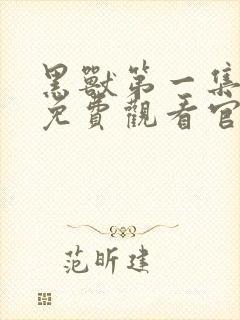 黑獸第一集
免費觀看官
范昕建